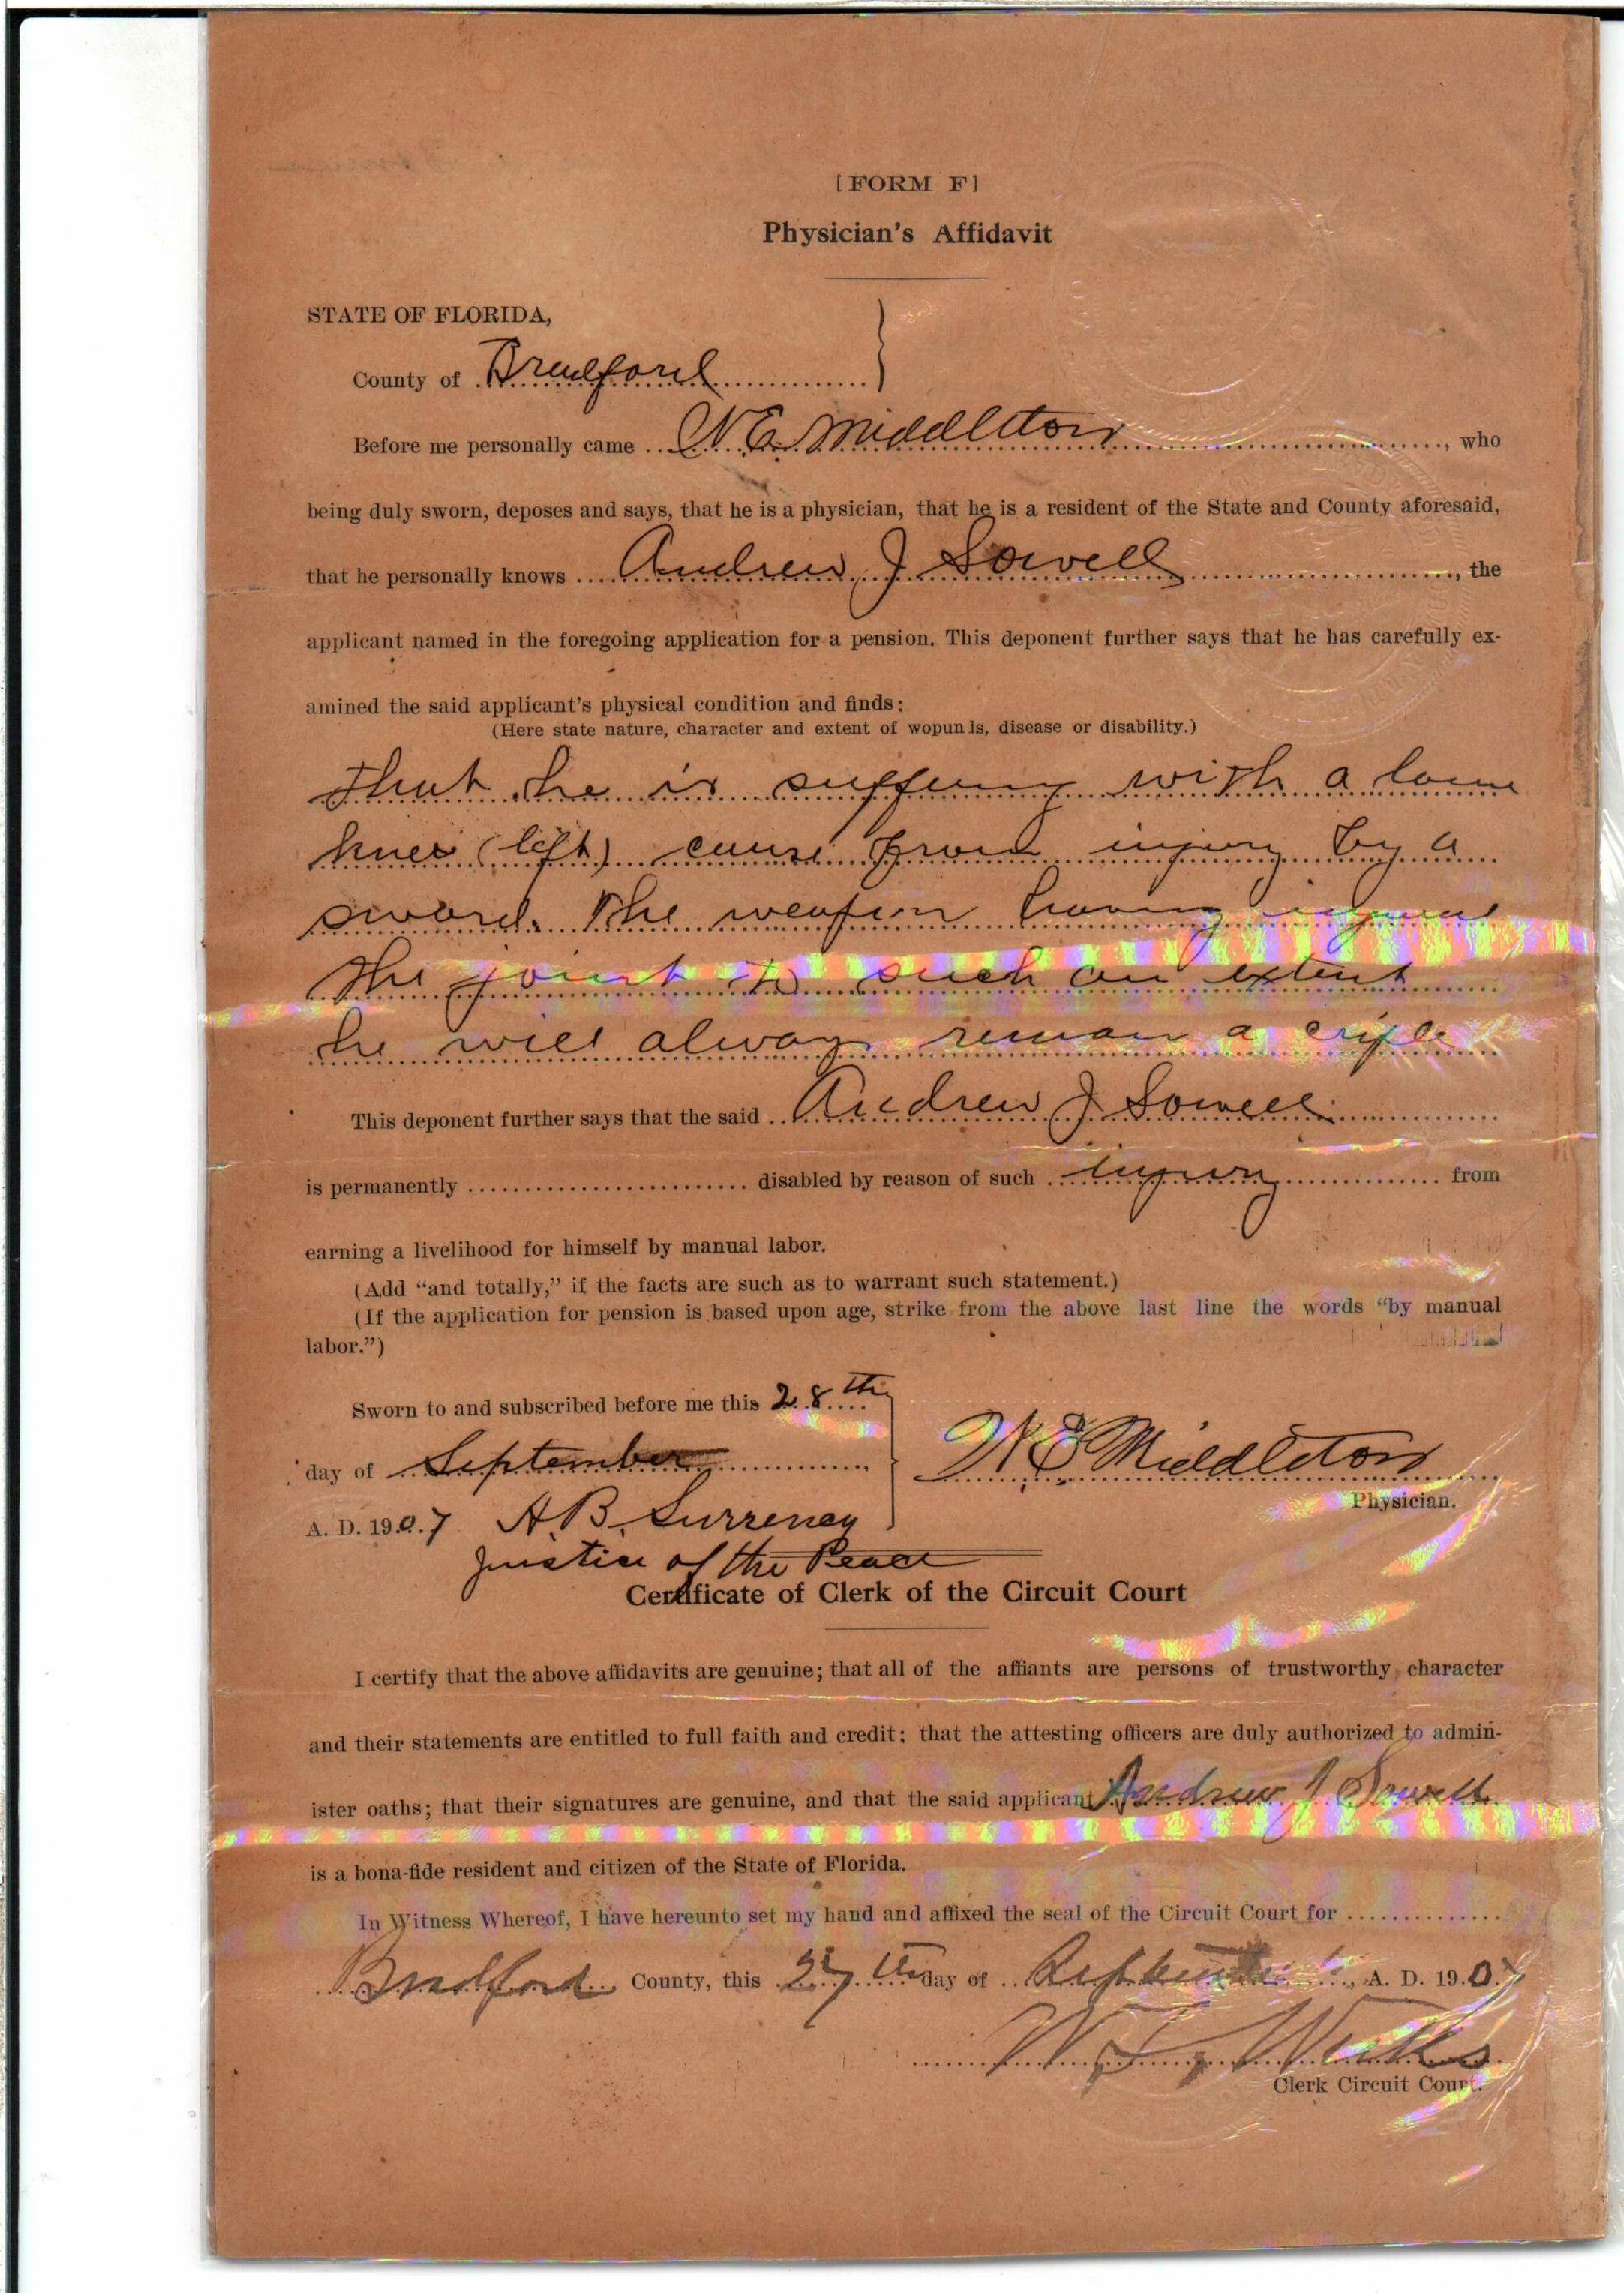 [FORM F]
Physician's Affidavit
STATE OF FLORIDA,
County of Bradford
Before me personally came N. E. Middleton, who
being duly sworn, deposes and says, that he is a physician, that he is a resident of the State and County aforesaid,
that he personally knows Andrew J Sowell, the
applicant named in the foregoing application for a pension. This deponent further says that he has carefully ex-
amined the said applicant's physical condition and finds:
(Here state nature, character and extent of wopunls, disease or disability.)
that he is suffering with a lame
knee (left) cause from injury by a
sword. The weapon having injured
the joint to such an extent
he will always remain a criple
This deponent further says that the said Andrew J. Sowell
is permanently disabled by reason of such injury from
earning a livelihood for himself by manual labor.
(Add "and totally," if the facts are such as to warrant such statement.)
(If the application for pension is based upon age, strike from the above last line the words "by manual
labor.")
Sworn to and subscribed before me this 28th
day of September
N E Middleton
Physician.
A. D. 1907 A. B. Surrency
Justice of the Peace
Certificate of Clerk of the Circuit Court
I certify that the above affidavits are genuine; that all of the affiants are persons of trustworthy character
and their statements are entitled to full faith and credit; that the attesting officers are duly authorized to admin-
ister oaths; that their signatures are genuine, and that the said applicant Andrew J. Sowell
is a bona-fide resident and citizen of the State of Florida.
In Witness Whereof, I have hereunto set my hand and affixed the seal of the Circuit Court for
Bradford County, this day of September, A. D. 190
Clerk Circuit Court.